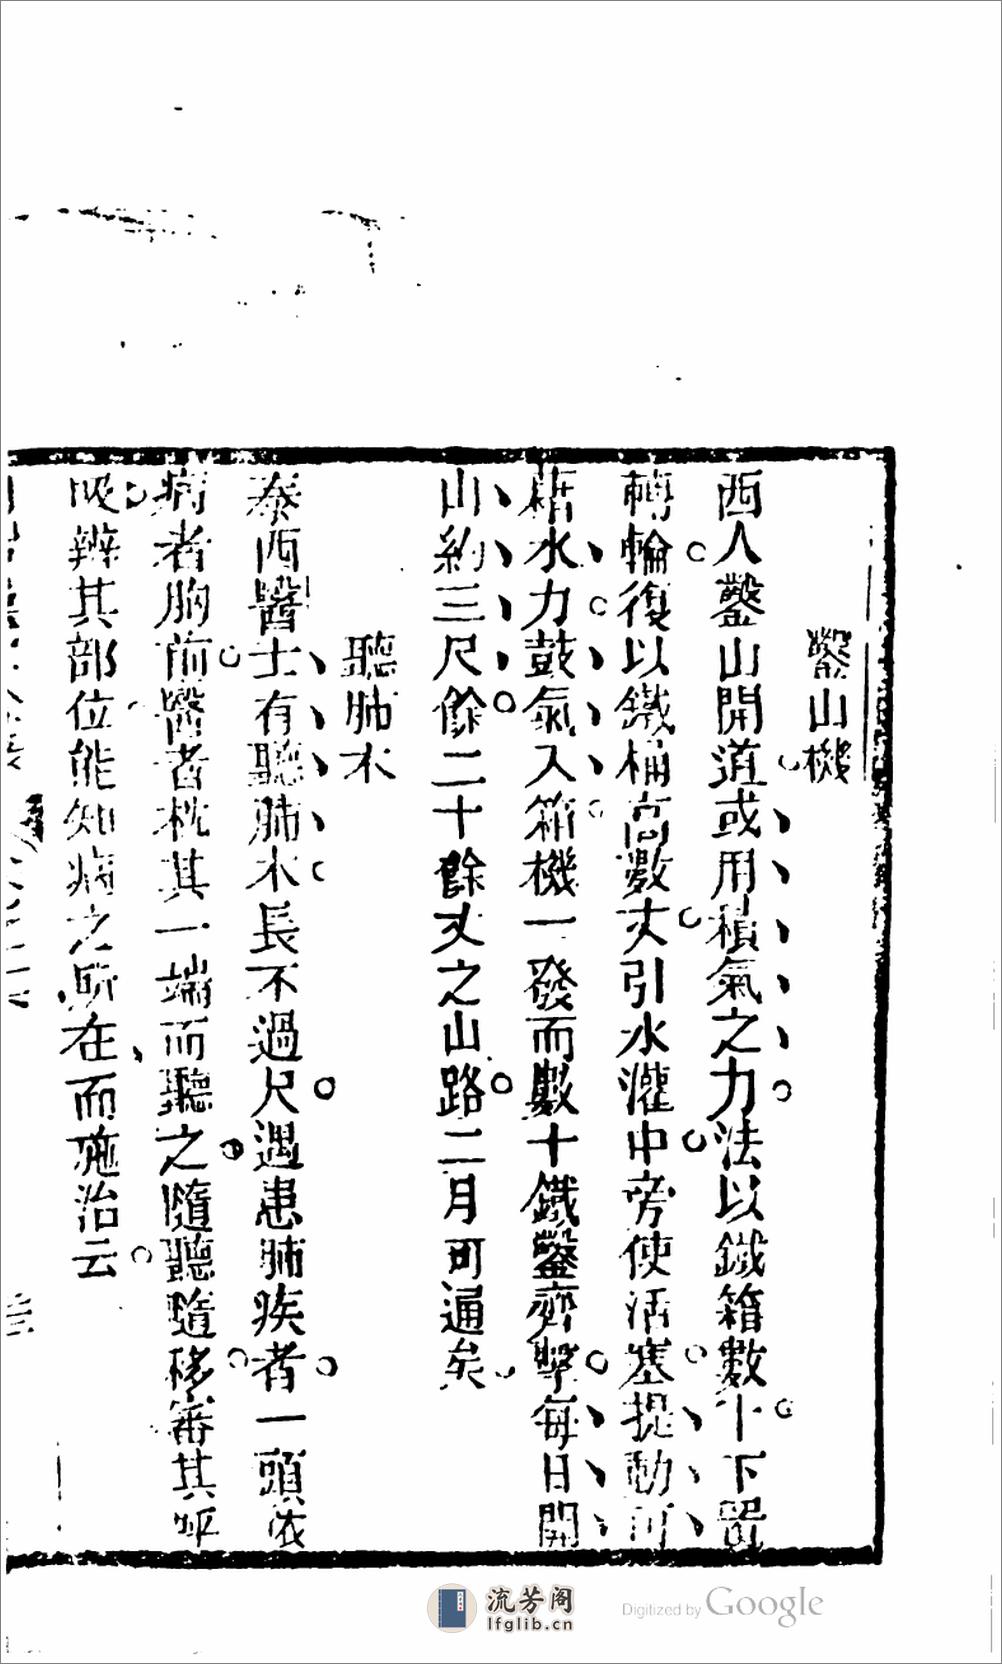 鑿山機
西人鑿山開道或用積氣之力法以鐵箱數十下置
轉輪復以鐵桶高數丈引水灌中旁使活塞提動可
藉水力鼓氣入箱機一發而數十鐵鑿齊擊每日開
山約三尺餘二十餘丈之山路二月可通矣
聽肺木
泰西醫士有聽肺木長不過尺遇患肺疾者一頭依
病者胸前醫者枕其一端而聽之隨聽隨移審其呼
吸辨其部位能知病之所在而施治云
流芳阁
lfglib.cn
Digitized by Google